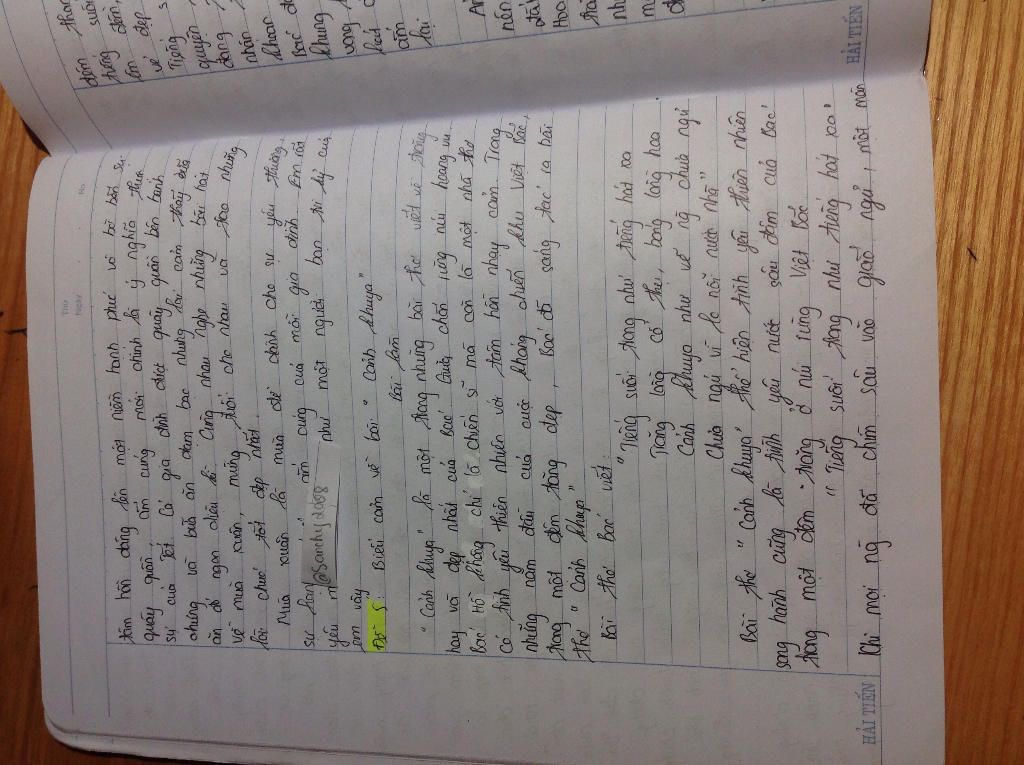 Thứ
Ngày
No.
tâm hồn dâng lên một niềm hạnh phúc vô bờ bến. Sự
quây quần ấm cúng mới chính là ý nghĩa thực
sự của Tết. Cả gia đình diệt quây quần bên bánh
chưng và bữa ăn đạm bạc nhưng lại cảm thấy bữa
ăn đó ngon diệu kì. Cùng nhau nghe những bài hát
về mùa xuân, mừng tuổi cho nhau và trao những
lời chúc tốt đẹp nhất.
Mùa xuân là mùa để dành cho sự yêu thương,
sự ấm cúng của mỗi gia đình. Em rất
yêu như một người bạn tri kỷ của
em vậy
@Sanchy2008
Đề 5: Biểu cảm về bài "Cảnh khuya"
Bài làm
"Cảnh khuya" là một trong những bài thơ viết về trăng
hay và đẹp nhất của Bác. Giữa chốn rừng núi hoang vu
Bác Hồ không chỉ là chiến sĩ mà còn là một nhà thơ
có tình yêu thiên nhiên với tâm hồn nhạy cảm. Trong
những năm đầu của cuộc kháng chiến khu Việt Bắc,
trong một đêm trăng đẹp, Bác đã sáng tác ra bài
thơ "Cảnh khuya"
Bài thơ Bác viết:
"Tiếng suối trong như tiếng hát xa
Trăng lồng cổ thụ, bóng lồng hoa
Cảnh khuya như vẽ ng chưa ngủ
Chưa ngủ vì lo nỗi nước nhà"
Bài thơ "Cảnh khuya" thể hiện tình yêu thiên nhiên
song hành cùng là tình yêu nước sâu đậm của Bác
trong một đêm trăng ở núi rừng Việt Bắc
"Tiếng suối trong như tiếng hát xa"
Khi mọi ng đã chìm sâu vào giấc ngủ, một màn
HẢI TIẾN
HẢI TIẾN